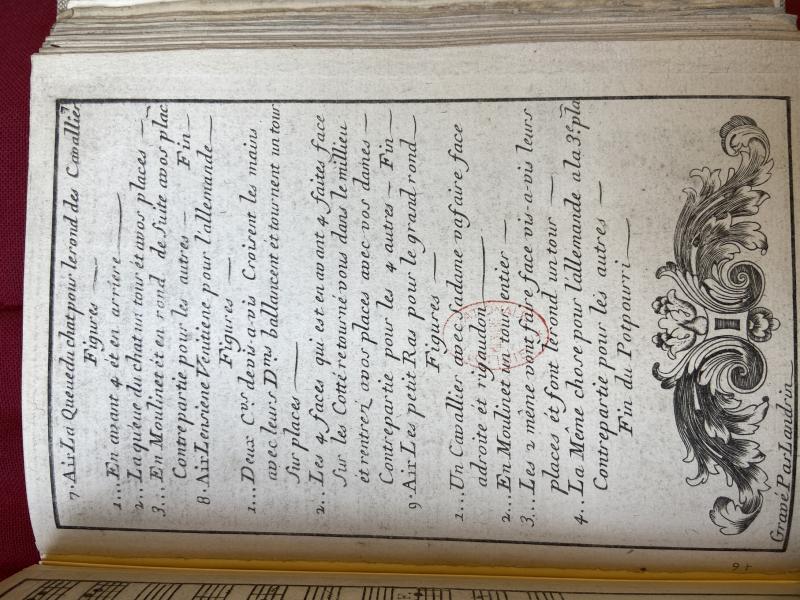 7
7. Air La Queue du chat pour le rond des Cavallier
Figures
1... En avant 4 et en arriere
2... La queue du chat un tour et a vos places
3... En Moulinet et en rond de suite a vos plac
Contrepartie pour les autres – Fin
8. Air Lensriene Venitiene pour l'allemande
Figures
1... Deux C.vrs de vis-a-vis Croisent les mains
avec leurs D.mes ballancent et tournent un tour
sur places
2... Les 4 faces qui est en avant 4 faites face
sur les Cotté retourné vous dans le millieu
et rentrez a vos places avec vos dames
Contrepartie pour les 4 autres – Fin
9. Air Les petit Ras pour le grand rond
Figures
1... Un Cavallier avec Madame va faire face
a droite et rigaudon
2... En Moulinet un tour entier
3... Les 2 même vont faire face vis-a-vis leurs
places et font le rond un tour
4... La Même chose pour l'allemande a la 3.e pla
Contrepartie pour lés autres
Fin du Potpourri
Gravé Par Landrin